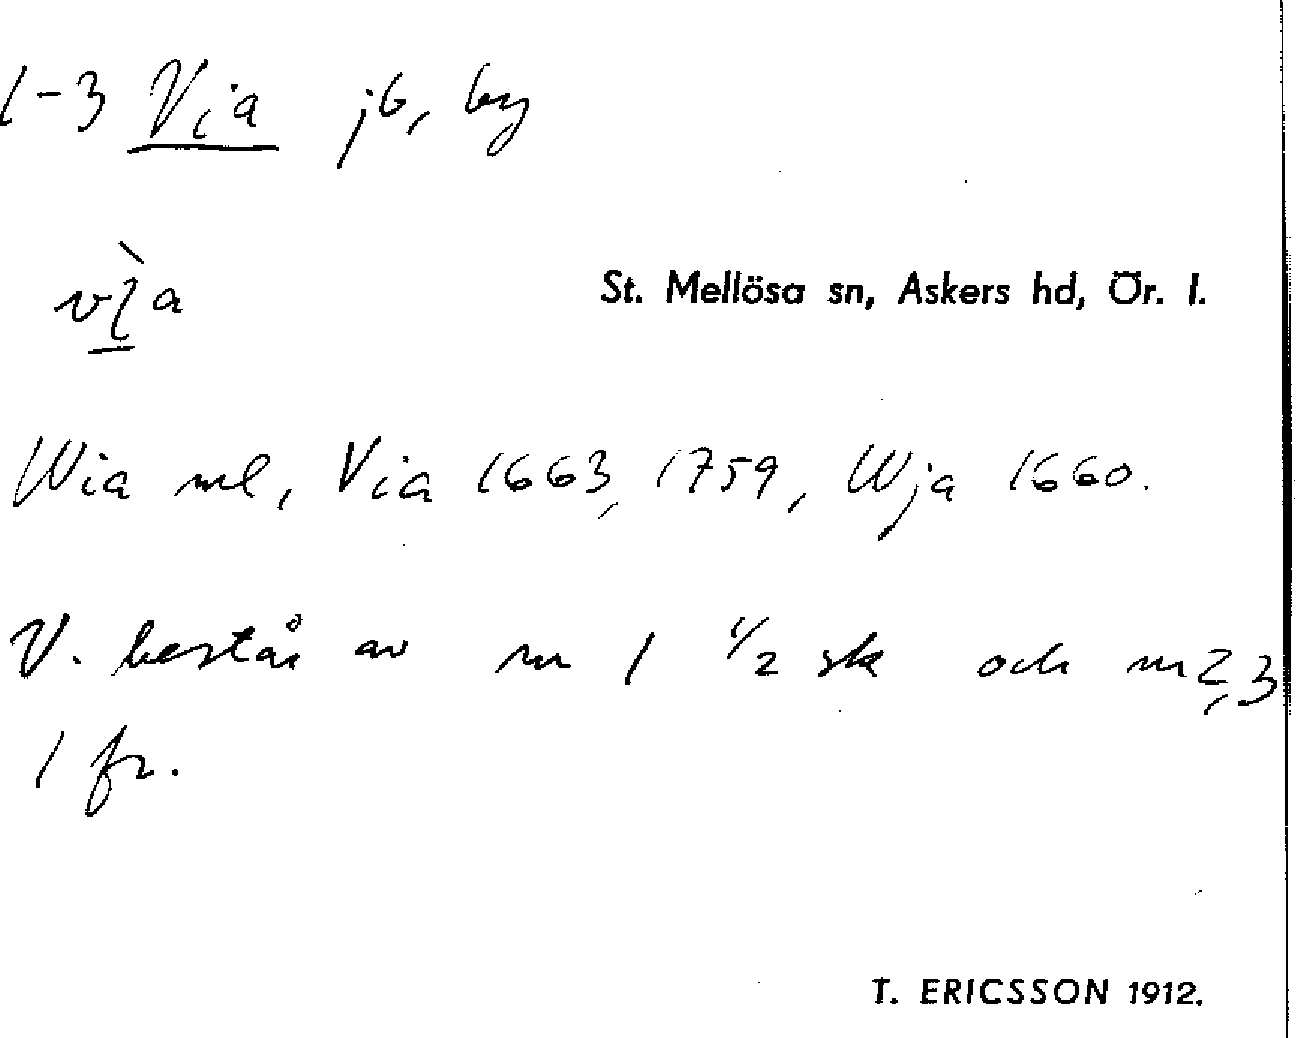 1-3 Via jb, by
vı̀a
St. Mellösa sn, Askers hd, Ör. l.
Wia ml, Via 1663, 1759, Wja 1660.
V. består av nr 1 1/2 sk och nr 2, 3
1 fr.
T. ERICSSON 1912.